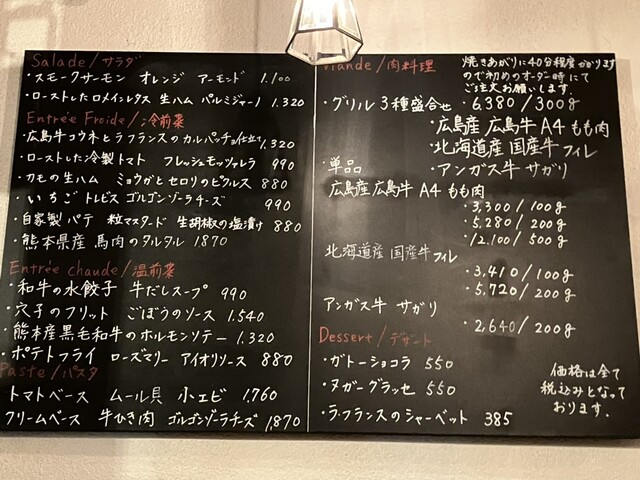 Salade/サラダ
・スモークサーモン オレンジ アーモンド 1.100
・ローストしたロメインレタス 生ハム パルミジャーノ 1.320
Entrée Froide/冷前菜
・広島牛コウネとラフランスのカルパッチョ仕立て 1,320
・ローストした冷製トマト フレッシュモッツァレラ 990
・カモの生ハム ミョウガとセロリのピクルス 880
・いちご トレビス ゴルゴンゾーラチーズ 990
・自家製パテ 粒マスタード 生胡椒の塩漬け 880
・熊本県産 馬肉のタルタル 1.870
Entrée chaude/温前菜
・和牛の水餃子 牛だしスープ 990
・穴子のフリット ごぼうのソース 1.540
・熊本産黒毛和牛のホルモンソテー 1.320
・ポテトフライ ローズマリー アイオリソース 880
Paste/パスタ
トマトベース ムール貝 小エビ 1,760
クリームベース 牛ひき肉 ゴルゴンゾーラチーズ 1,870
Viande/肉料理
焼きあがりに40分程度かかります
ので初めのオーダー時にて
ご注文お願いします。
・グリル3種盛合せ・6,380/300g
・広島産 広島牛 A4 もも肉
・北海道産 国産牛フィレ
・アンガス牛 サガリ
・単品
広島産 広島牛 A4 もも肉
・3,300/100g
・5,280/200g
・12,100/500g
北海道産 国産牛フィレ
・3,410/100g
・5,720/200g
アンガス牛 サガリ
・2,640/200g
Dessert/デザート
・ガトーショコラ 550
・ヌガーグラッセ 550
・ラ・フランスのシャーベット 385
価格は全て
税込みとなって
おります。